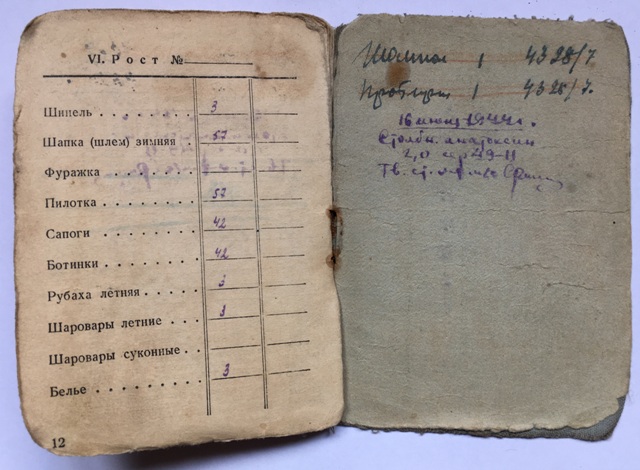 VI. Рост №
Шинель 3
Шапка (шлем) зимняя 57
Фуражка
Пилотка 57
Сапоги 42
Ботинки 42
Рубаха летняя 3
Шаровары летние 3
Шаровары суконные
Белье 3
12
1 4328/7.
1 4328/7.
1944г.
Столбн. анатоксин
2,0